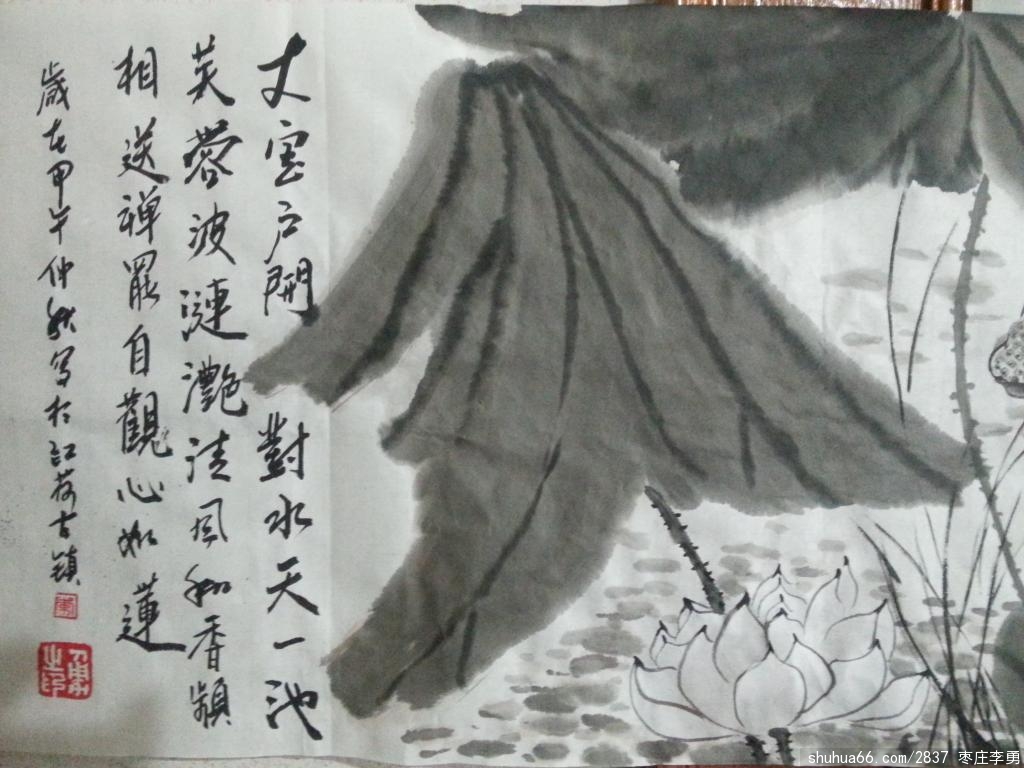 丈室户開對水天一池
芙蓉波漣灔清風和香頻
相送禅罷自觀心如蓮
歲在甲午仲秋写於红荷古鎮
勇之印
shuhua66.com/2837 枣庄李勇